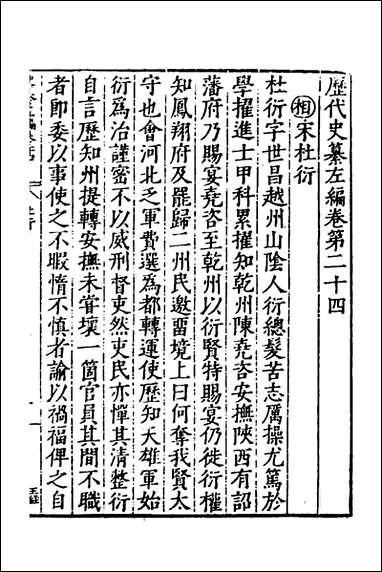 歷代史纂左編卷第二十四
相宋杜衍
杜衍字世昌越州山陰人衍總髮苦志厲操尤篤於
學擢進士甲科累擢知乾州陳堯咨安撫陝西有詔
藩府乃賜宴堯咨至乾州以衍賢特賜宴仍徙衍權
知鳳翔府及罷歸二州民邀畱境上曰何奪我賢太
守也會河北乏軍費選為都轉運使歷知天雄軍始
衍爲治謹密不以威刑督吏然吏民亦憚其清整衍
自言歷知州提轉安撫未甞壞一箇官員其間不職
者即委以事使之不暇惰不慎者諭以禍福俾之自